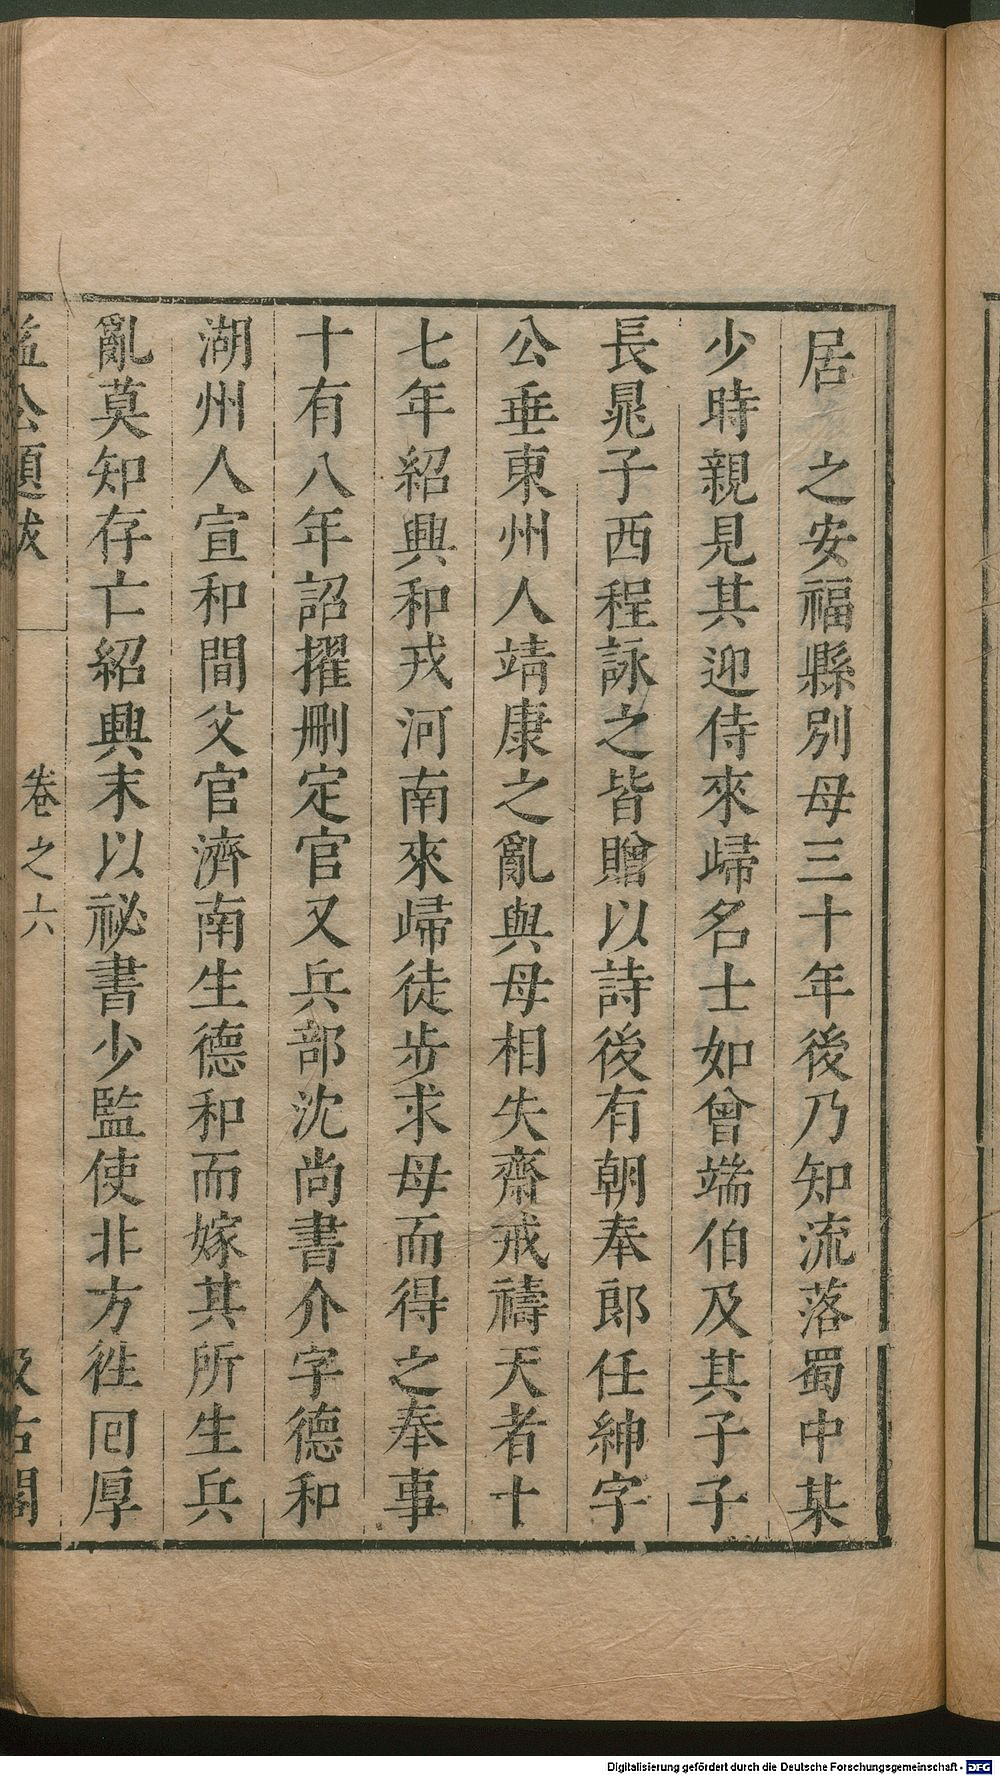 居　之安福縣別母三十年後乃知流落蜀中某
少時親見其迎侍來歸名士如曾端伯及其子子
長晁子西程詠之皆贈以詩後有朝奉郎任紳字
公垂東州人靖康之亂與母相失齋戒禱天者十
七年紹興和戎河南來歸徒步求母而得之奉事
十有八年詔擢刪定官又兵部沈尚書介字德和
湖州人宣和間父官濟南生德和而嫁其所生兵
亂莫知存亡紹興末以祕書少監使非方徃囘厚
益公題跋
卷之六
汲古閣
Digitalisierung gefördert durch die Deutsche Forschungsgemeinschaft - DFG